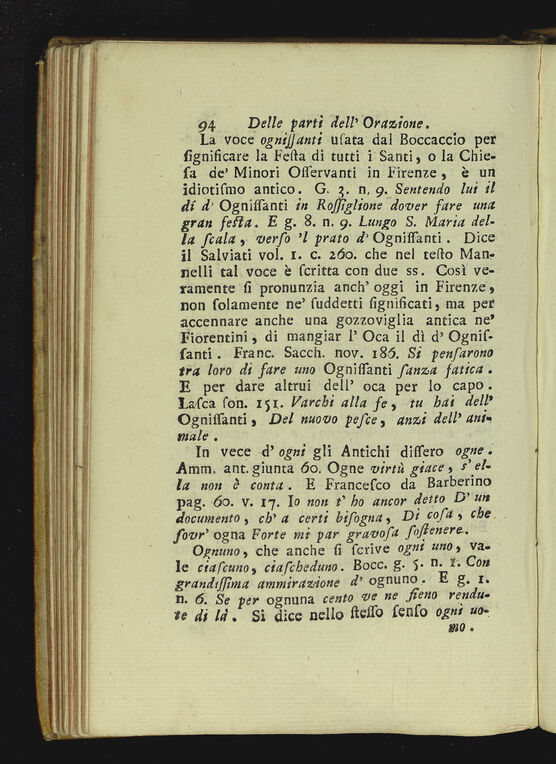 94 Delle parti dell' Orazione.
La voce ogniſſanti uſata dal Boccaccio per
ſignificare la Feſta di tutti i Santi, o la Chie-
ſa de' Minori Oſſervanti in Firenze, è un
idiotiſmo antico. G. 3. n. 9. Sentendo lui il
dì d' Ogniſſanti in Roſſiglione dover fare una
gran feſta. E g. 8. n. 9. Lungo S. Maria del-
la ſcala, verſo 'l prato d' Ogniſſanti. Dice
il Salviati vol. 1. c. 260. che nel teſto Man-
nelli tal voce è ſcritta con due ss. Così ve-
ramente ſi pronunzia anch' oggi in Firenze,
non ſolamente ne' ſuddetti ſignificati, ma per
accennare anche una gozzoviglia antica ne'
Fiorentini, di mangiar l' Oca il dì d' Ogniſ-
ſanti. Franc. Sacch. nov. 186. Si penſarono
tra loro di fare uno Ogniſſanti ſanza fatica.
E per dare altrui dell' oca per lo capo.
Laſca ſon. 151. Varchi alla fe, tu hai dell'
Ogniſſanti, Del nuovo peſce, anzi dell' ani-
male.
In vece d' ogni gli Antichi diſſero ogne.
Amm. ant. giunta 60. Ogne virtù giace, s' el-
la non è conta. E Franceſco da Barberino
pag. 60. v. 17. Io non t' ho ancor detto D' un
documento, ch' a certi biſogna, Di coſa, che
ſovr' ogna Forte mi par gravoſa ſoſtenere.
Ognuno, che anche ſi ſcrive ogni uno, va-
le ciaſcuno, ciaſcheduno. Bocc. g. 5. n. 1. Con
grandiſſima ammirazione d' ognuno. E g. 1.
n. 6. Se per ognuna cento ve ne fieno rendu-
te di là. Si dice nello ſteſſo ſenſo ogni uo-
mo.